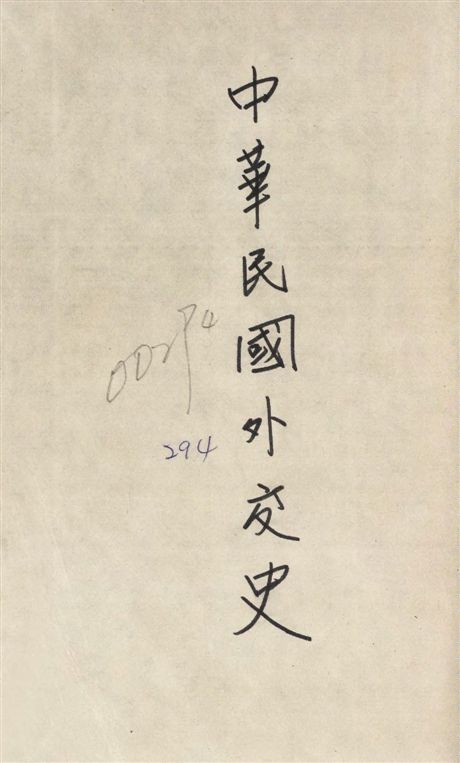 中華民國外交史
294